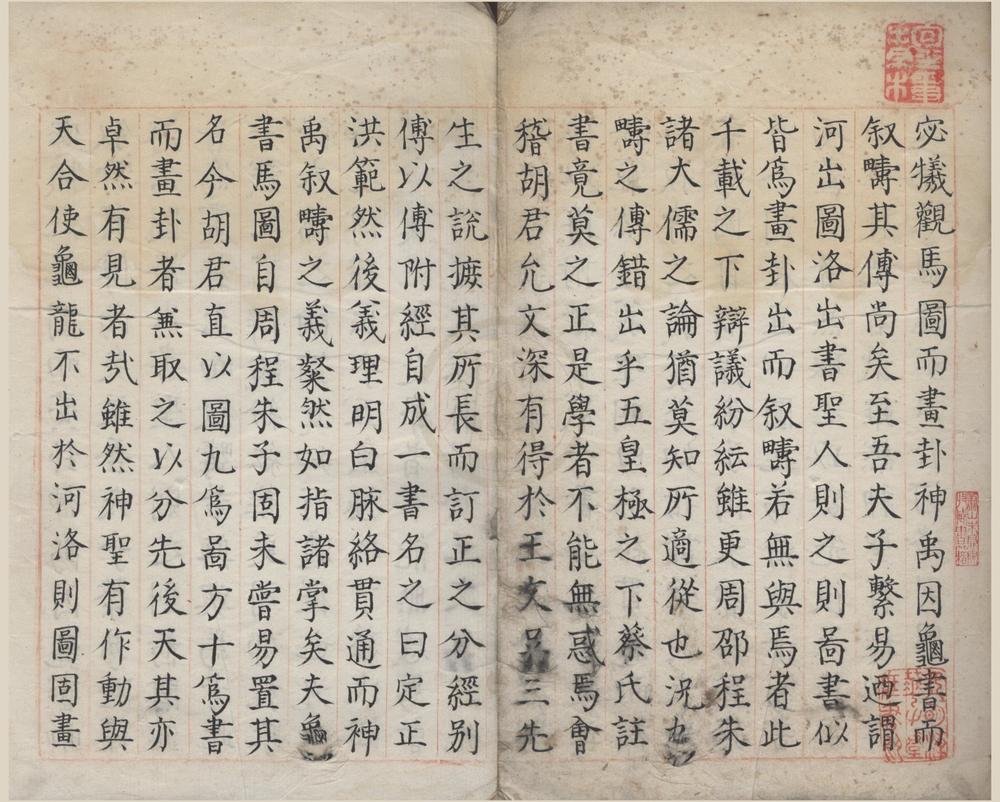 宓犧觀馬圖而畫卦神禹因龜書而
叙疇其傳尚矣至吾夫子繫易迺謂
河出圖洛出書聖人則之則啚書似
皆爲畫卦出而叙疇若無與焉者此
千載之下辯議紛紜雖更周邵程朱
諸大儒之論猶莫知所適從也況九
疇之傳錯出乎五皇極之下蔡氏註
書竟莫之正是學者不能無惑焉會
稽胡君允文深有得於王文呂三先
生之說摭其所長而訂正之分經別
傳以傳附經自成一書名之曰定正
洪範然後義理明白脉絡貫通而神
禹叙疇之義粲然如指諸掌矣夫龜
書馬圖自周程朱子固未嘗易置其
名今胡君直以圖九爲啚方十爲書
而畫卦者無取之以分先後天其亦
卓然有見者㢤雖然神聖有作動與
天合使龜龍不出於河洛則圖固畫